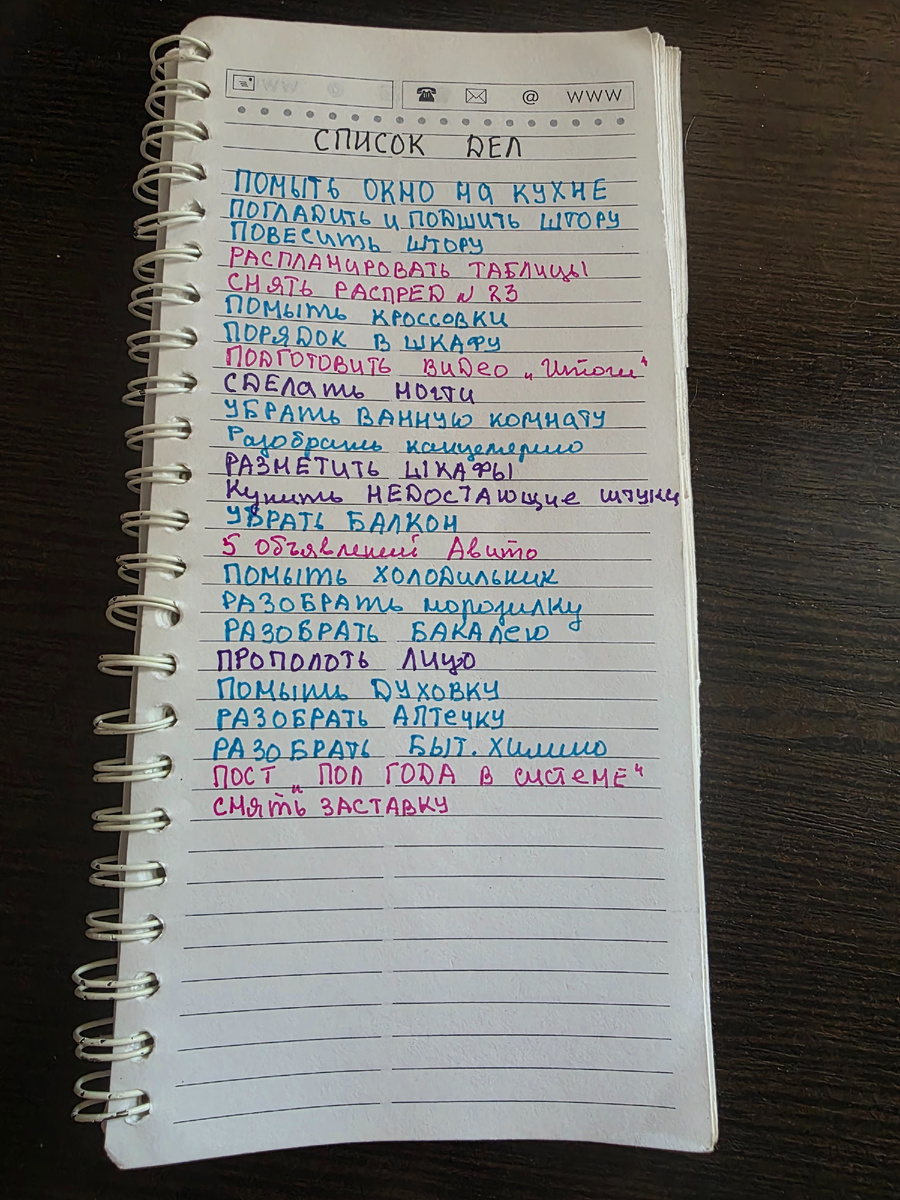 @ WWW
СПИСОК ДЕЛ
ПОМЫТЬ ОКНО НА КУХНЕ
ПОГЛАДИТЬ И ПОДШИТЬ ШТОРУ
ПОВЕСИТЬ ШТОРУ
РАСПЛАНИРОВАТЬ ТАБЛИЦЫ
СНЯТЬ РАСПРЕД N 23
ПОМЫТЬ КРОССОВКИ
ПОРЯДОК В ШКАФУ
ПОДГОТОВИТЬ ВИДЕО „Итоги“
СДЕЛАТЬ НОГТИ
УБРАТЬ ВАННУЮ КОМНАТУ
Разобрать канцелярию
РАЗМЕТИТЬ ШКАФЫ
Купить НЕДОСТАЮЩИЕ ШТУКИ
УБРАТЬ БАЛКОН
5 объявлений Авито
ПОМЫТЬ ХОЛОДИЛЬНИК
РАЗОБРАТЬ МОРОЗИЛКУ
РАЗОБРАТЬ БАКАЛЕЮ
ПРОПОЛОТЬ ЛИЦО
ПОМЫТЬ ДУХОВКУ
РАЗОБРАТЬ АПТЕЧКУ
РАЗОБРАТЬ БЫТ. ХИМИЮ
ПОСТ „ПОЛ ГОДА В СИСТЕМЕ“
СНЯТЬ ЗАСТАВКУ